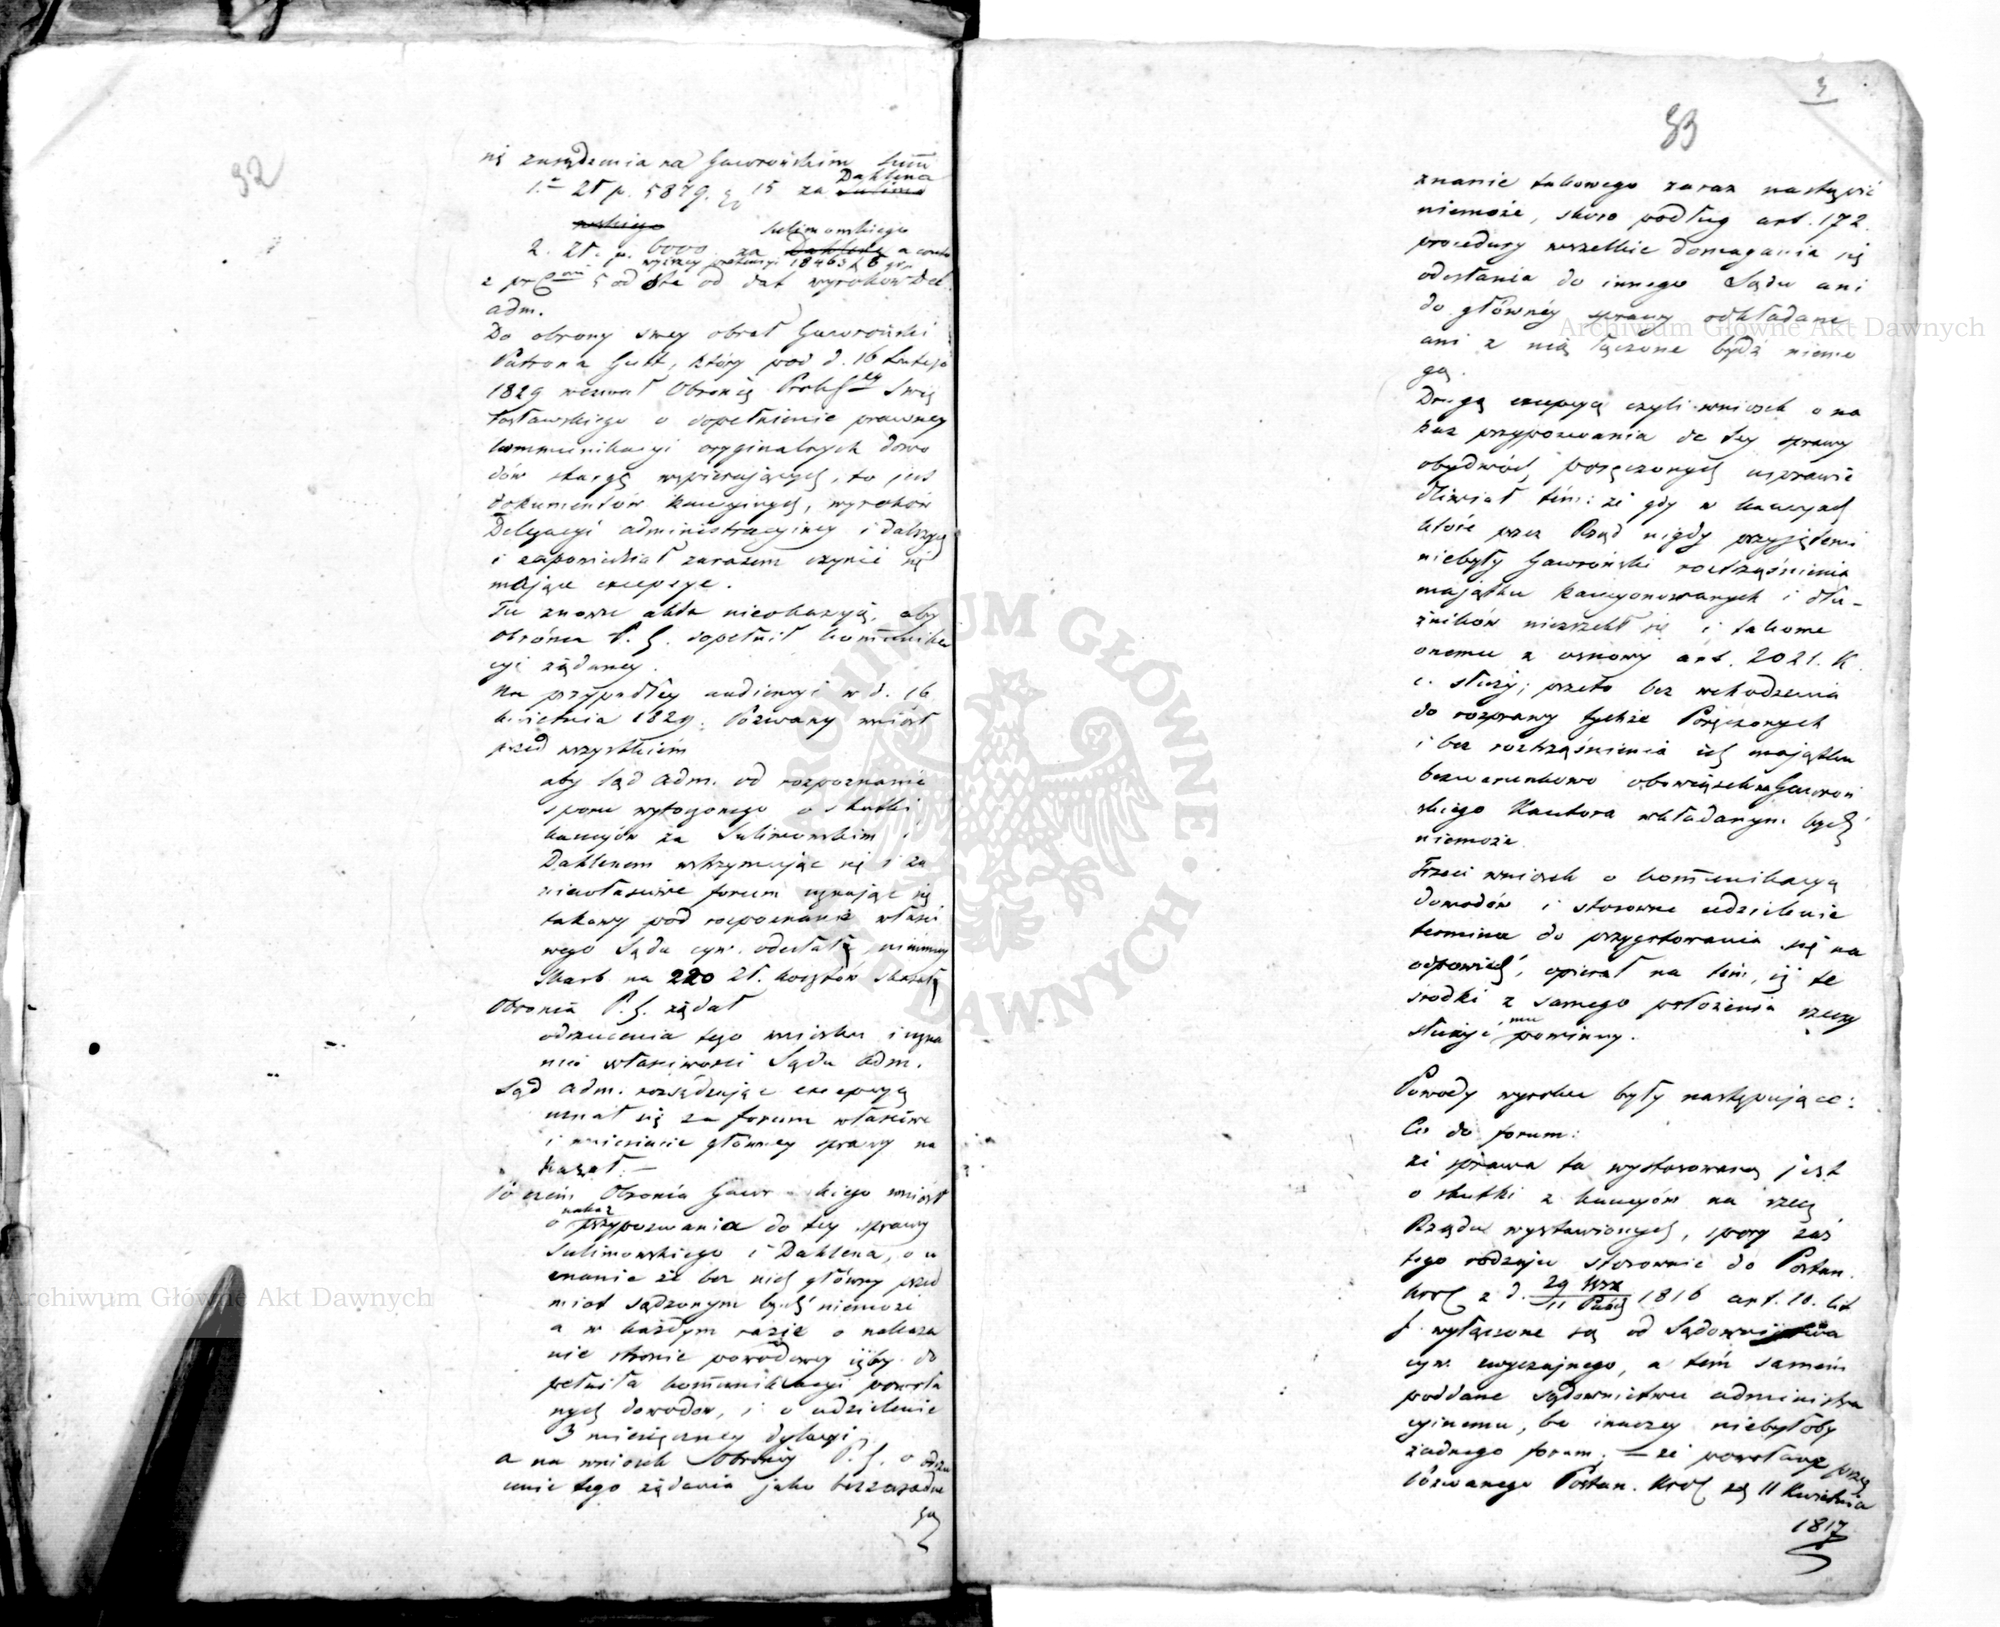 32
się zasądzenia na Gawrońskim summ
1. Zł p. 5879. g 15 za Dahlena
2. Zł. p. 6000 za Sulimowskiego a conto
wyższey pretensyi 18463 6 gr.
z prctmi 5 od sta od dat wyroków Del.
adm.
Do obrony swey obrał Gawroński
Patrona Gutt, który pod d. 16 Lutego
1829 wezwał Obrońcę Prok
tosławskiego o dopełnienie prawney
kommunikacyi oryginalnych dowo
dów skargę wspierających, to jest
dokumentów kaucyinych, wyroków
Delegacyi administracyiney i dalszych
i zapowiedział zarazem czynić się
mające excepcye.
Tu znowu akta nieokazują, aby
Obrońca P. G. dopełnił komunika
cyi żądaney.
Na przypadłey audiencyi w d. 16
kwietnia 1829. Pozwany wniósł
przed wszystkiém
aby Sąd adm. od rozpoznania
sporu wytoczonego o skutki
kaucyów za Sulimowskim i
Dahlenem wstrzymując się i za
niewłaściwe forum uznając się
takowy pod rozpoznanie właści
wego Sądu cyw. odesłał,
Skarb na 220 Zł. kosztów skazał
Obrońca P. G. żądał
odrzucenia tego wniosku i uzna
nia właściwości Sądu adm.
Sąd adm. rozsądzając excepcyą
uznał się za forum właściwe
i wniesienie główney sprawy na
kazał. —
Poczém Obrońca Gawrońskiego wniósł
o nakaz przypozwania do tey sprawy
Sulimowskiego i Dahlena, o u
znanie że bez nich główny przed
miot sądzonym bydź niemoże
a w każdym razie o nakaza
nie stronie powodowey iżby do
pełniła komunikacyi powoła
nych dowodów, i o udzielenie
3 miesięczney dylacyi;
a na wniosek Obrońcy P. G. o odrzu
cenie tego żądania jako bezzasadne
go
3
33
znanie takowego zaraz nastąpić
niemoże, skoro podług art. 172.
procedury wszelkie domagania się
odesłania do innego Sądu ani
do główney sprawy odkładane
ani z nią łączone bydź niemo
gą.
Drugą excepcyą czyli wniosek o na
kaz przypozwania do tey sprawy
obydwóch poręczonych usprawie
dliwiał tém: że gdy w kaucyach
które przez Rząd nigdy przyjętemi
niebyły Gawroński roztrząśnienia
majątku kaucyonowanych i dłu-
żników niezrzekł się i takowe
onemu z osnowy art. 2021. K.
c. służy; przeto bez wchodzenia
do rozprawy tychże Poręczonych
i bez roztrząśnienia ich majątku
bezwarunkowo obowiązek na Gawroń
skiego Kautora wkładanym bydź
niemoże.
Trzeci wniosek o komunikacyą
dowodów i stosowne udzielenie
termina do przygotowania się na
odpowiedź, opierał na tém, iż te
środki z samego położenia rzeczy
służyć mu powinny.
Powody wyroku były następujące:
Co do forum:
że sprawa ta wystosowaną jest
o skutki z kaucyów na rzecz
Rządu wystawionych, spory zaś
tego rodzaju stosownie do Postan.
Król z d. 29 Wrz / 11 Paźd 1816 art. 10. lit.
f wyłączone są od Sądownictwa
cyw. zwyczajnego, a tém samém
poddane sądownictwu administra
cyinemu, bo inaczey niebyłoby
żadnego forum; — że powołane przez
Pozwanego Postan. Król z d 11 Kwietnia
1817